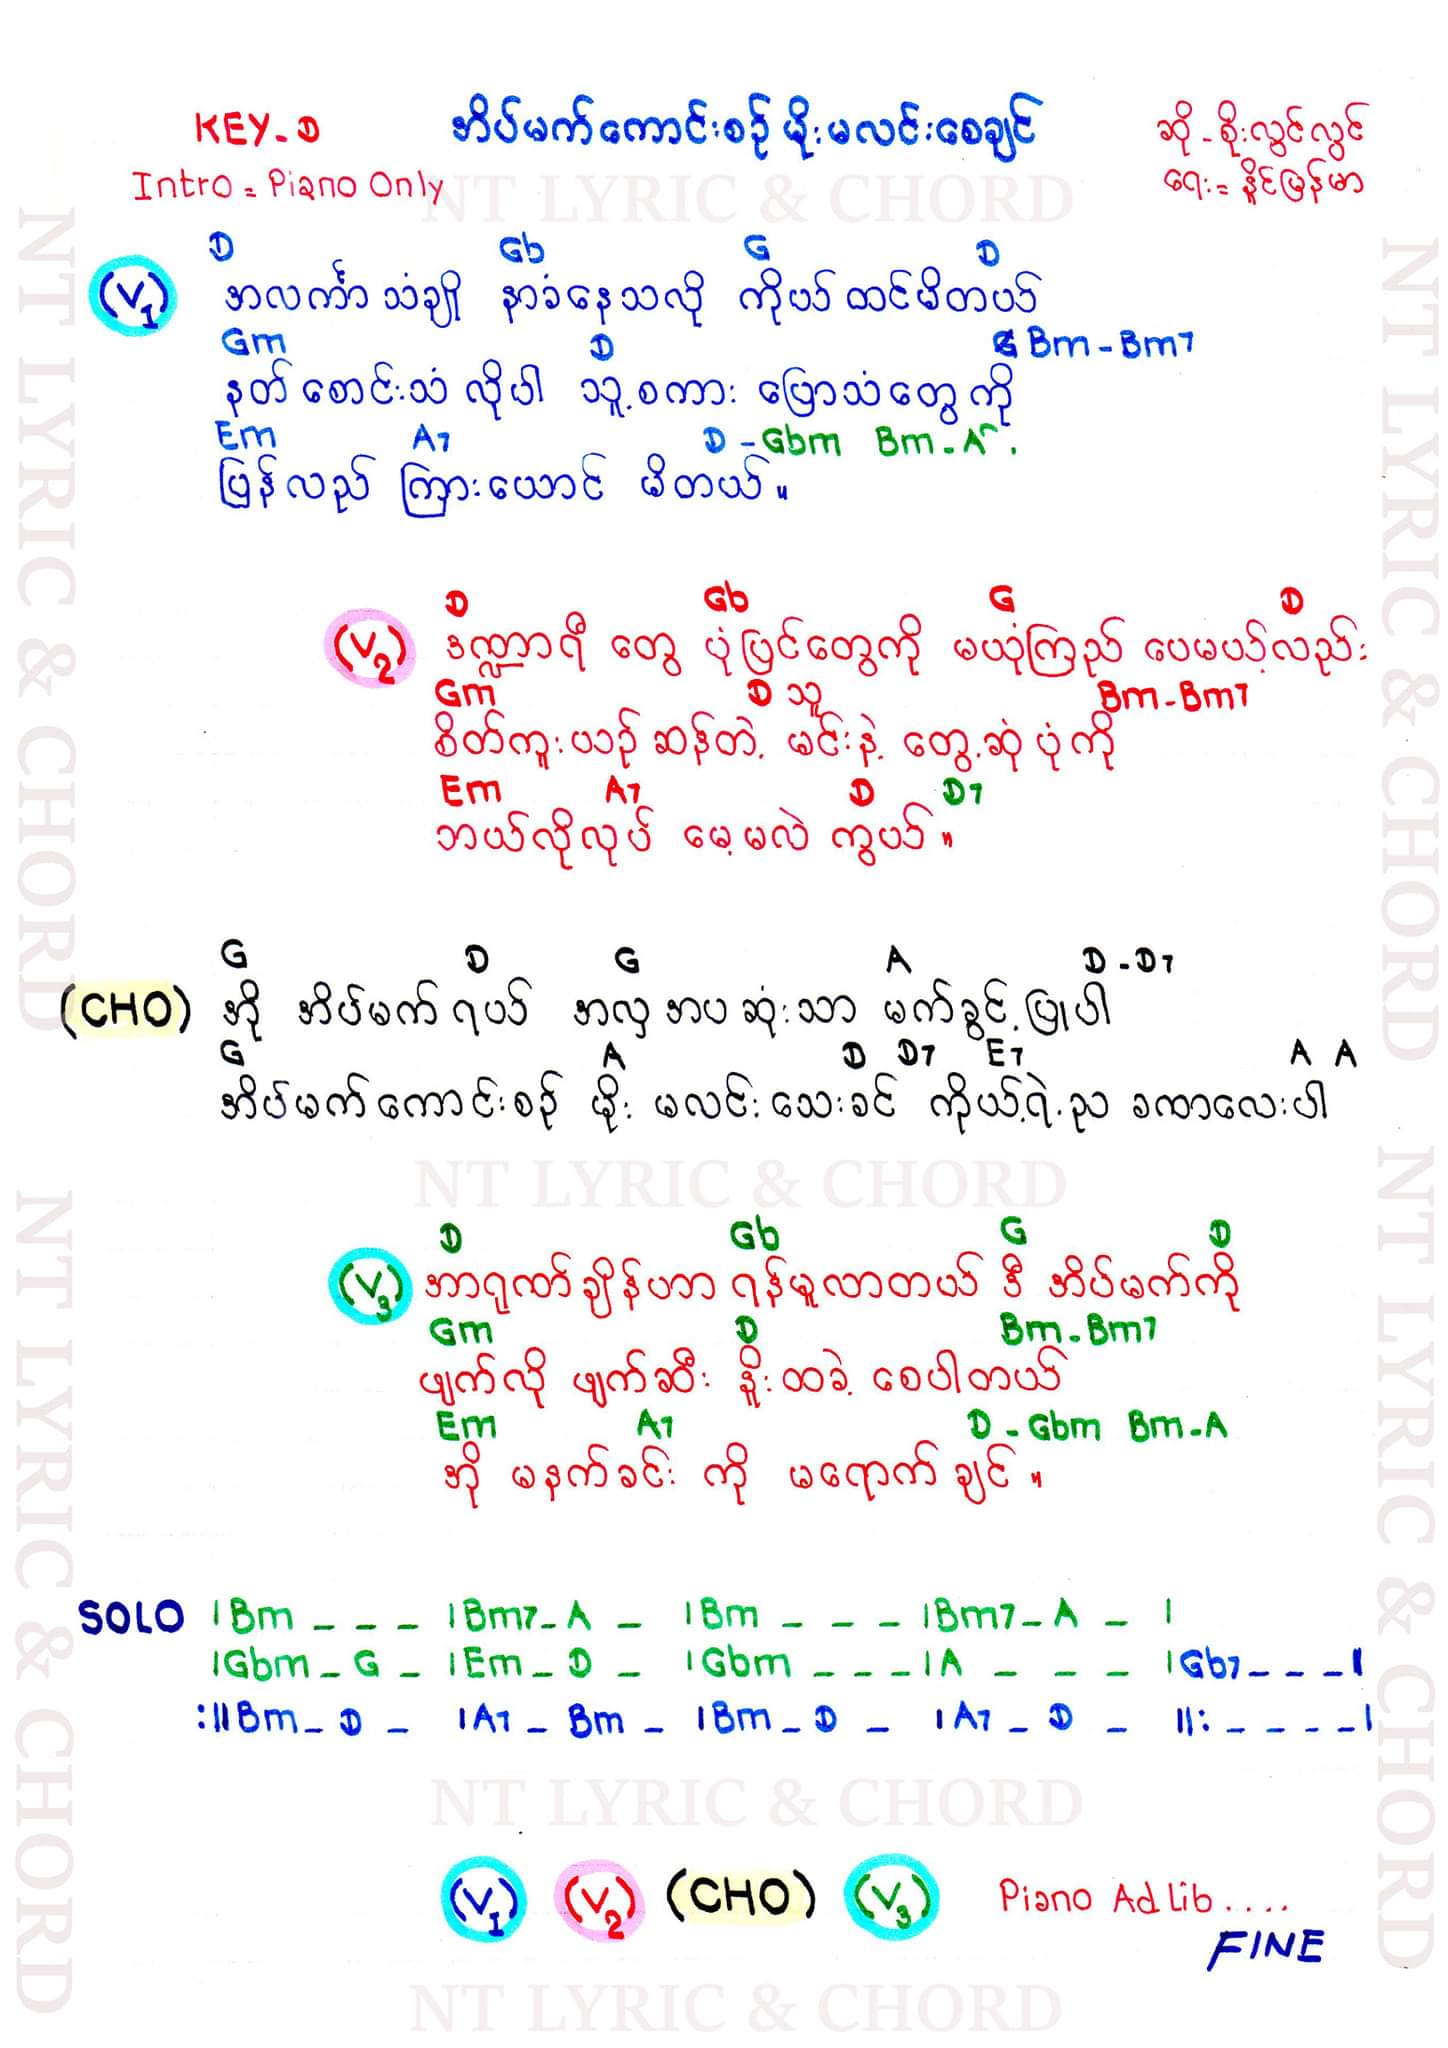 KEY-D
အိပ်မက်ကောင်းစဉ် မိုးမလင်းစေချင်
ဆို - စိုးလွင်လွင်
Intro = Piano Only
ရေး = နိုင်မြန်မာ
NT LYRIC & CHORD
D Gb G D
(V1) အလင်္ကာ သံချို နာခံနေသလို ကိုယ် ထင်မိတယ်
Gm D G Bm - Bm7
နတ် စောင်းသံ လိုပါ သူ့စကား ပြောသံတွေ ကို
Em A7 D - Gbm Bm - A
ပြန်လည် ကြားယောင် မိတယ်။
D Gb G D
(V2) ဒဏ္ဍာရီ တွေ ပုံပြင်တွေကို မယုံကြည် ပေမယ့်လည်း
Gm D သူ Bm - Bm7
စိတ်ကူးယဉ် ဆန်တဲ့ မင်းနဲ့ တွေ့ဆုံ ပုံ ကို
Em A7 D D7
ဘယ်လိုလုပ် မေ့မလဲ ကွယ်။
G D G A D - D7
(CHO) အို အိပ်မက် ရယ် အလှ အပ ဆုံးသာ မက်ခွင့်ပြုပါ
G A D D7 E7 A A
အိပ်မက်ကောင်းစဉ် မိုး မလင်း သေးခင် ကိုယ့်ရဲ့ည ခဏလေးပါ
NT LYRIC & CHORD
D Gb G D
(V3) အာရုဏ် ချိန်ပာာ ရန်မူလာတယ် ဒီ အိပ်မက်ကို
Gm D Bm - Bm7
ဖျက်လို ဖျက်ဆီး နိုးထခဲ့ စေပါတယ်
Em A7 D - Gbm Bm - A
အို မနက်ခင်း ကို မရောက် ချင်။
SOLO |Bm _ _ _ |Bm7 - A _ |Bm _ _ _ |Bm7 - A _ |
|Gbm _ G _ |Em _ D _ |Gbm _ _ _ |A _ _ _ |Gb7 _ _ _ ||
:||Bm _ D _ |A7 _ Bm _ |Bm _ D _ |A7 _ D _ ||: _ _ _ _ |
NT LYRIC & CHORD
(V1) (V2) (CHO) (V3) Piano Ad Lib ....
FINE
NT LYRIC & CHORD
NT LYRIC & CHORD
NT LYRIC & CHORD
NT LYRIC & CHORD
NT LYRIC & CHORD